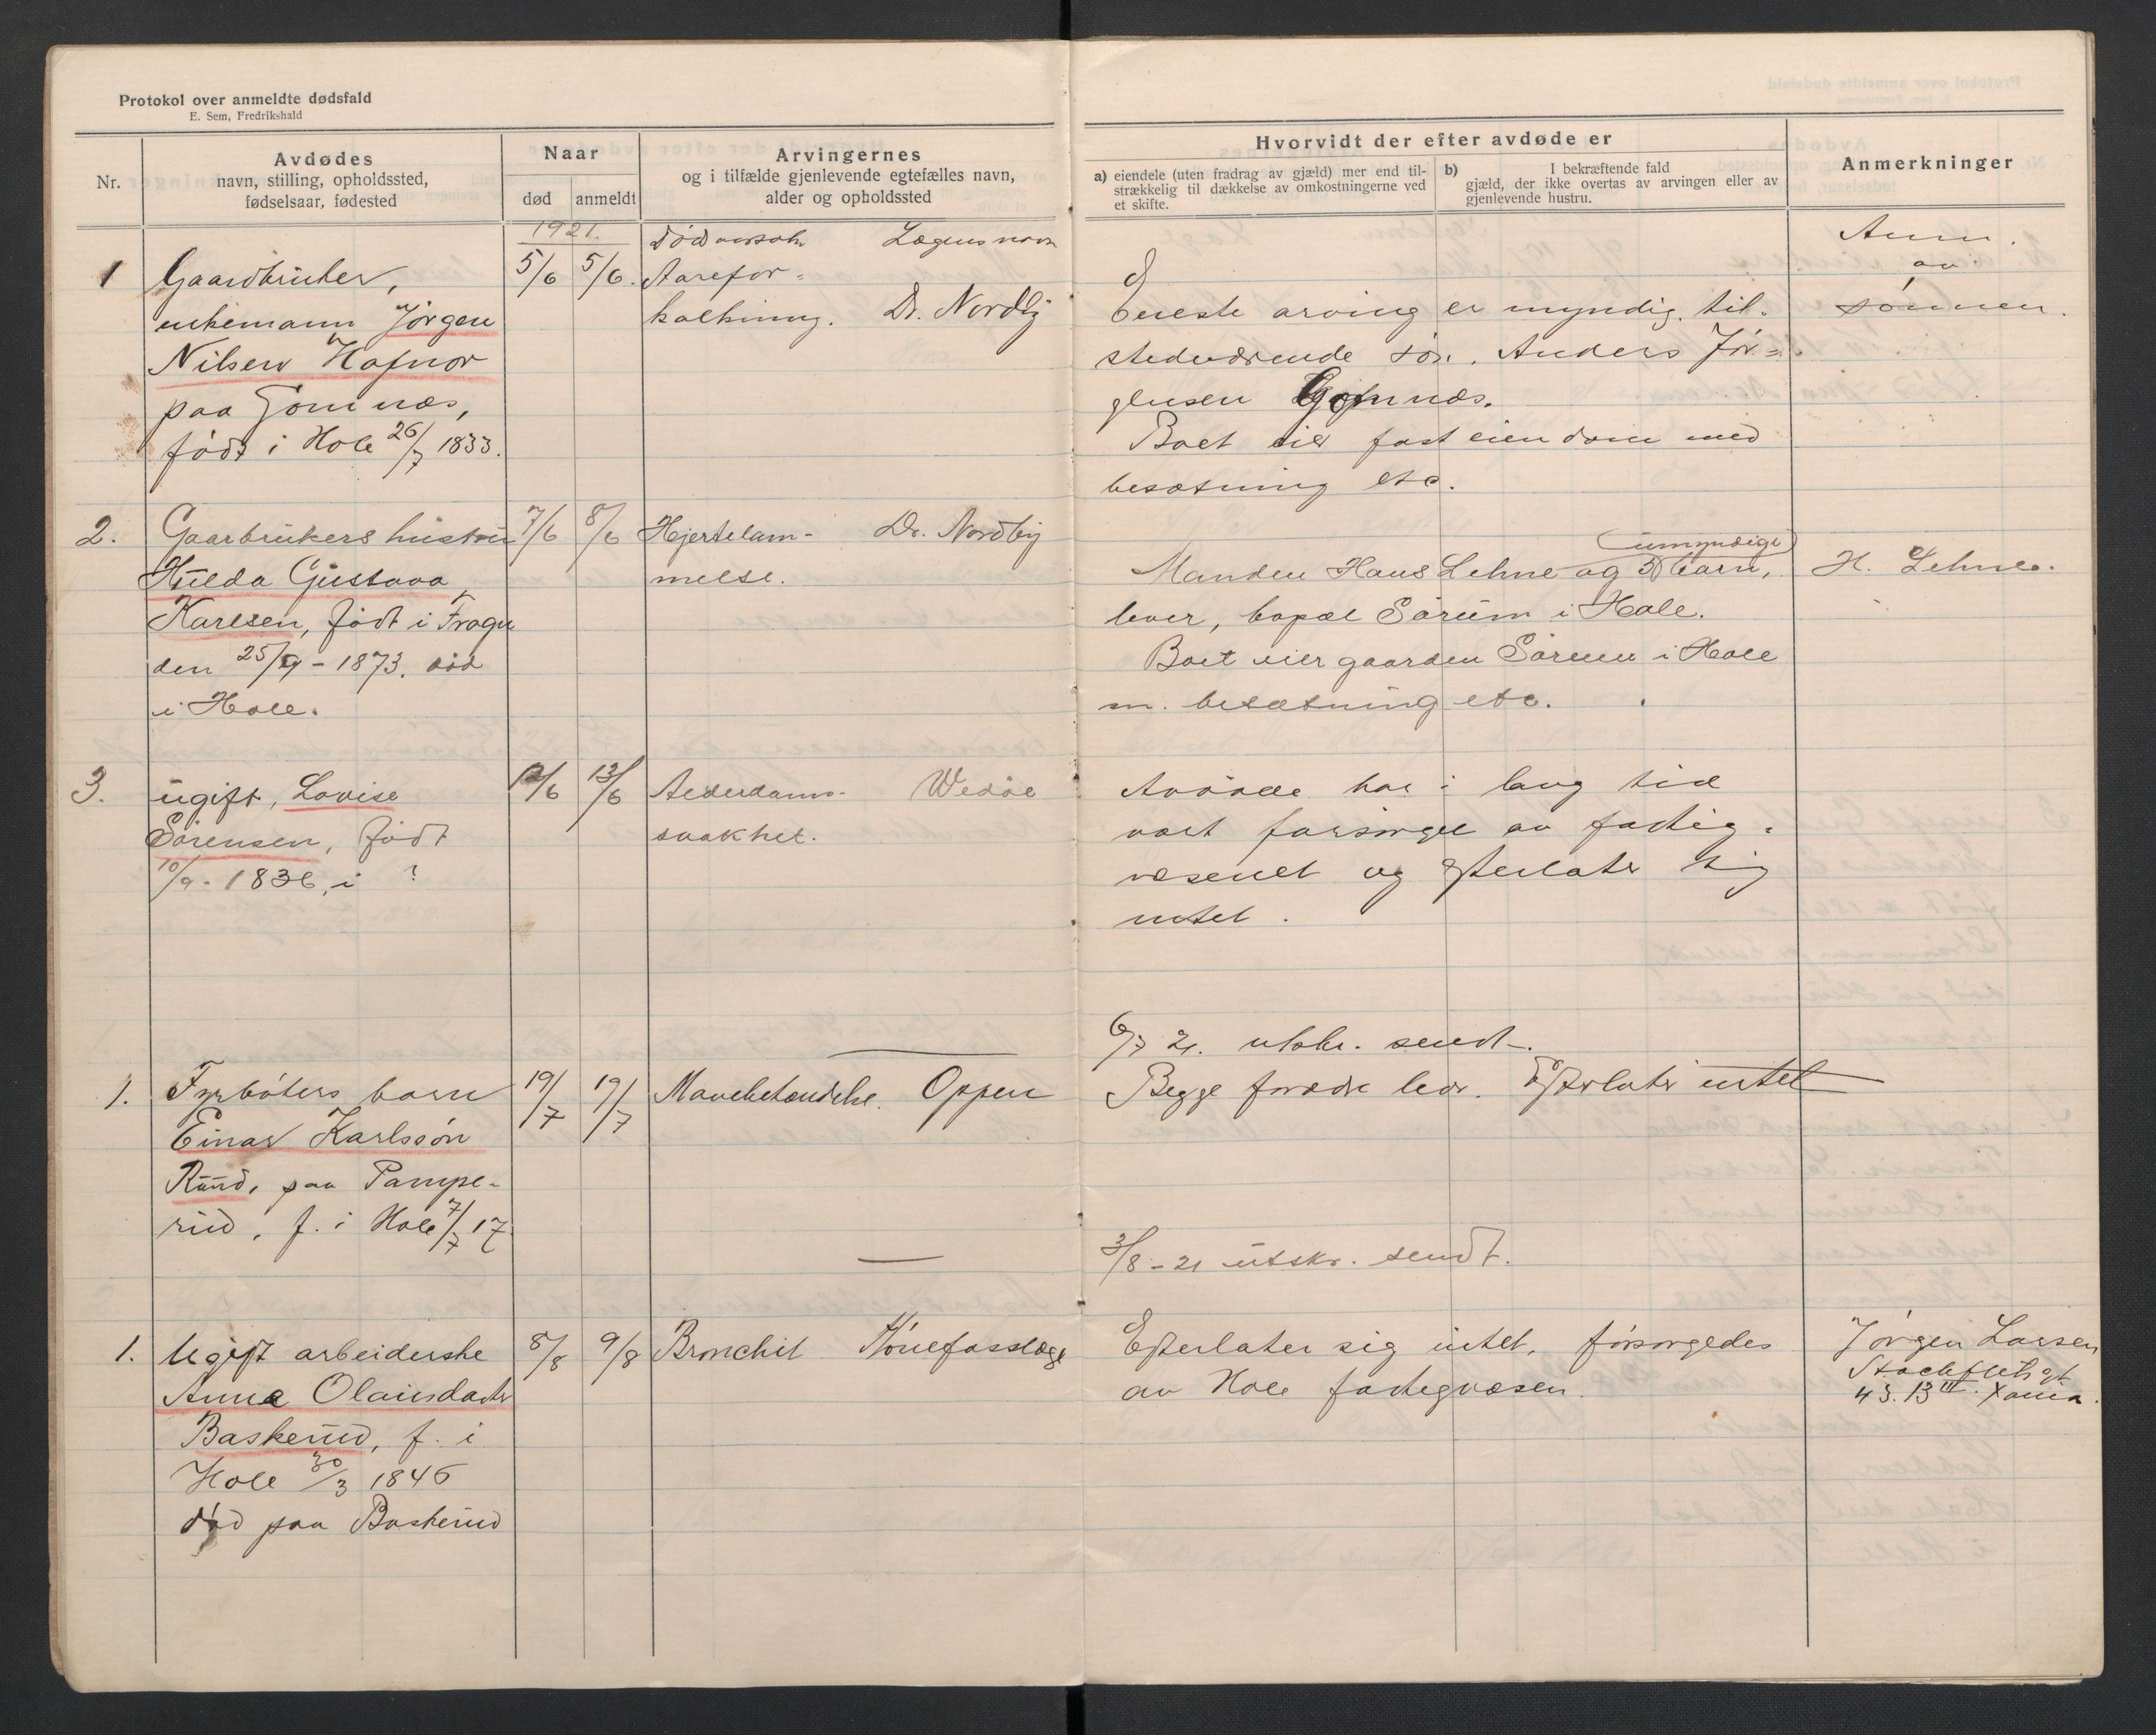 Protokol over anmeldte dødsfald
E. Sem, Fredrikshald
Nr.
Avdødes
navn, stilling, opholdssted,
fødselsaar, fødested
Naar
død
anmeldt
Arvingernes
og i tilfælde gjenlevende egtefælles navn,
alder og opholdssted
Hvorvidt der efter avdøde er
a) eiendele (uten fradrag av gjæld) mer end til-
strækkelig til dækkelse av omkostningerne ved
et skifte.
b) I bekræftende fald
gjæld, der ikke overtas av arvingen eller av
gjenlevende hustru.
Anmerkninger
1921.
Dødsaarsak Lægens navn
1 Gaardbruker,
enkemann Jörgen
Nilsen Hafnor
paa Gomnæs,
född i Hole 26/7 1833.
5/6 5/6.
Aarefor=
kalkning. Dr. Nordby
Eneste arving er myndig, til-
stedeværende søn, Anders Jör=
gensen Gomnæs.
Boet eier fast eiendom med
besætning etc.
Anm.
av
sönnen.
2. Gaarbrukers hustru
Hulda Gustava
Karlsen, födt i Frogn
den 25/9 - 1873. död
i Hole.
7/6 8/6
Hjertelam- Dr. Nordby
melse.
(umyndige)
Manden Hans Lehne og 3 barn,
lever, bopæl Sörum i Hole.
Boet eier gaarden Sörum i Hole
m. besætning etc.
H. Lehne.
3. ugift, Lovise
Sörensen, födt
10/9 - 1836, i ?
12/6 13/6
Alderdoms- Wedöe
svakhet.
Avdöde har i lang tid
vært forsörget av fattig=
væsenet og efterlater sig
intet.
6/7 21. utskr. sendt.
1. Fyrböters barn
Einar Karlssön
Ruud, paa Pampe-
rud, f. i Hole 7/7 17
19/7 19/7
Mavebetændelse. Oppen
Begge foreldre lever. Efterlater intet
3/8 - 21 utskr. sendt.
1. Ugift arbeiderske
Anne Olainsdatter
Baskerud, f. i
Hole 30/3 1846
död paa Baskerud
8/8 9/8
Bronchit Hönefosslæge
Efterlater sig intet, forsörgedes
av Hole fattigvæsen.
Jörgen Larsen
43. 13 III. Xania.